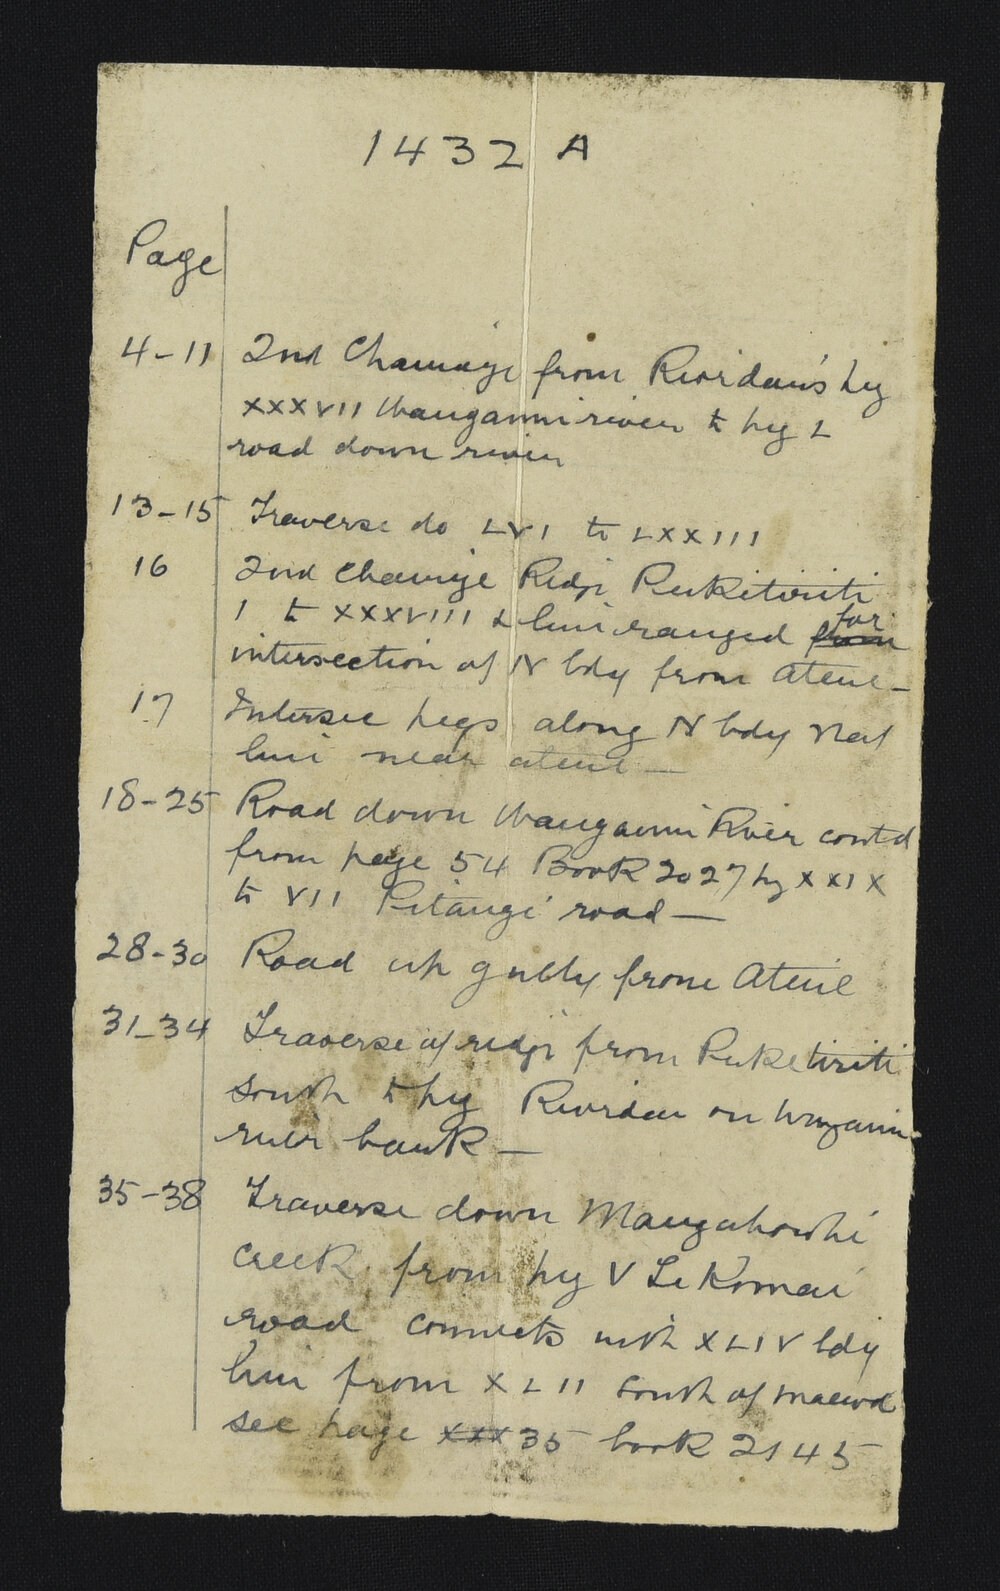 1432 A
Page
4-11 2nd Chainage from Riordan's peg
XXXVII Wanganui river to peg L
road down river
13-15 Traverse do LVI to LXXIII
16 2nd Chainage Ridge Puketiriti
I to XXXVIII & line ranged from for
intersection of N bdy from Atene-
17 Intersec pegs along N bdy Nat
line near atene-
18-25 Road down Wanganui River contd
from page 54 Book 2027 peg XXIX
to VII Pitangi road-
28-30 Road up gully from Atene
31-34 Traverse of ridge from Puketiriti
south to peg Riordan on Wnganui-
river bank-
35-38 Traverse down
Creek from peg V Te Komai
road connects with XLIV bdy
line from XLII south of
see page XXX 35 book 2145